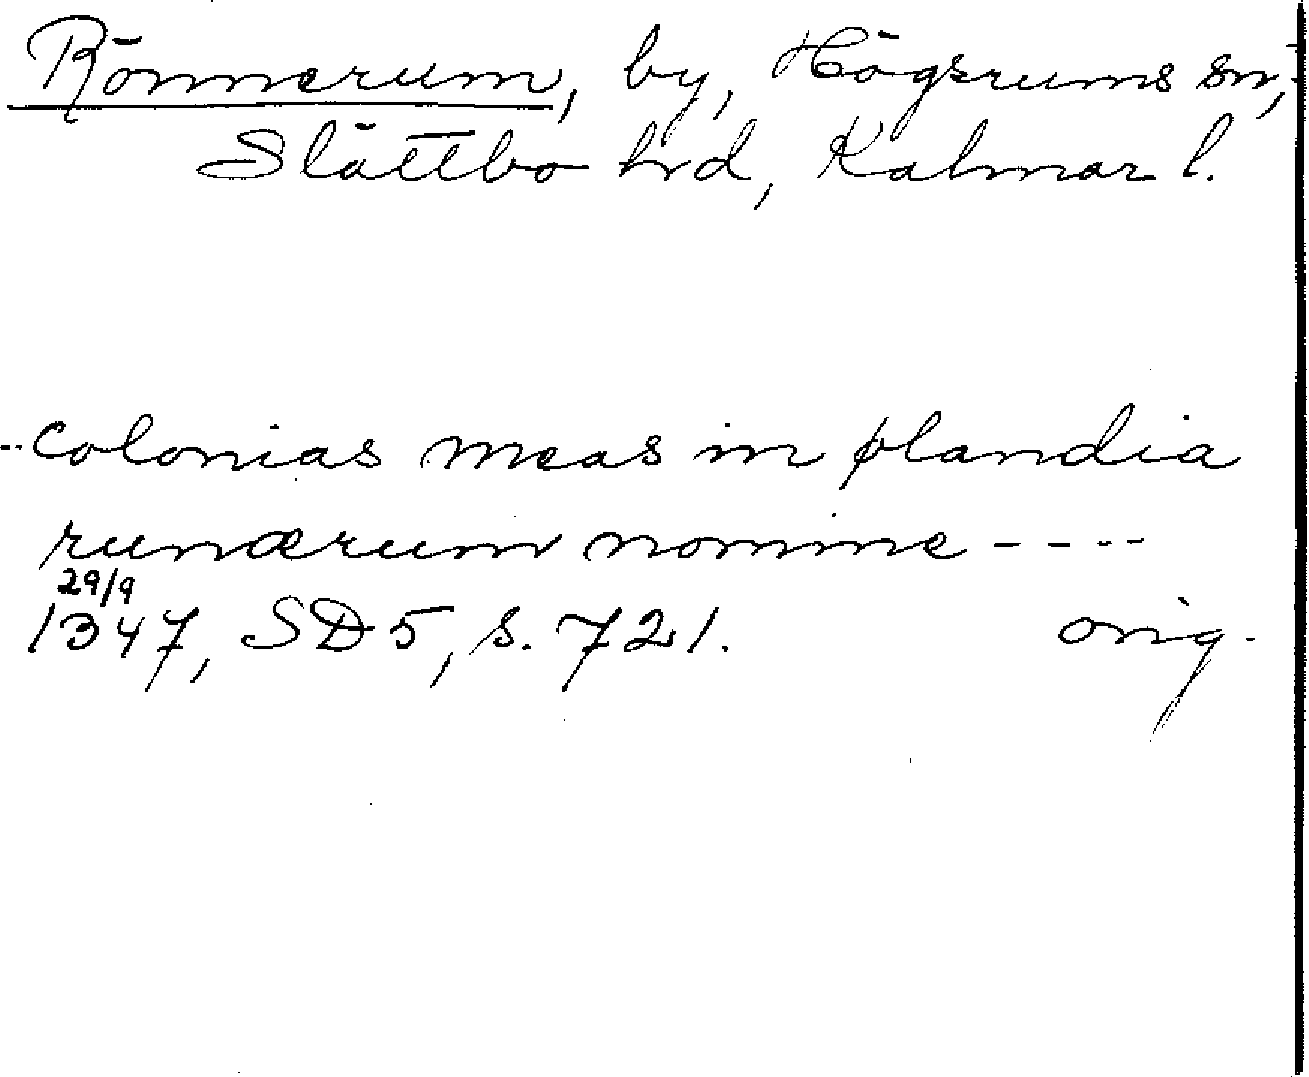 Rönnerum, by, Högsrums sn,
Slättbo hd, Kalmar l.
--colonias meas in ølandia
runærum nomine ----
29/9
1347, SD 5, s. 721. orig.